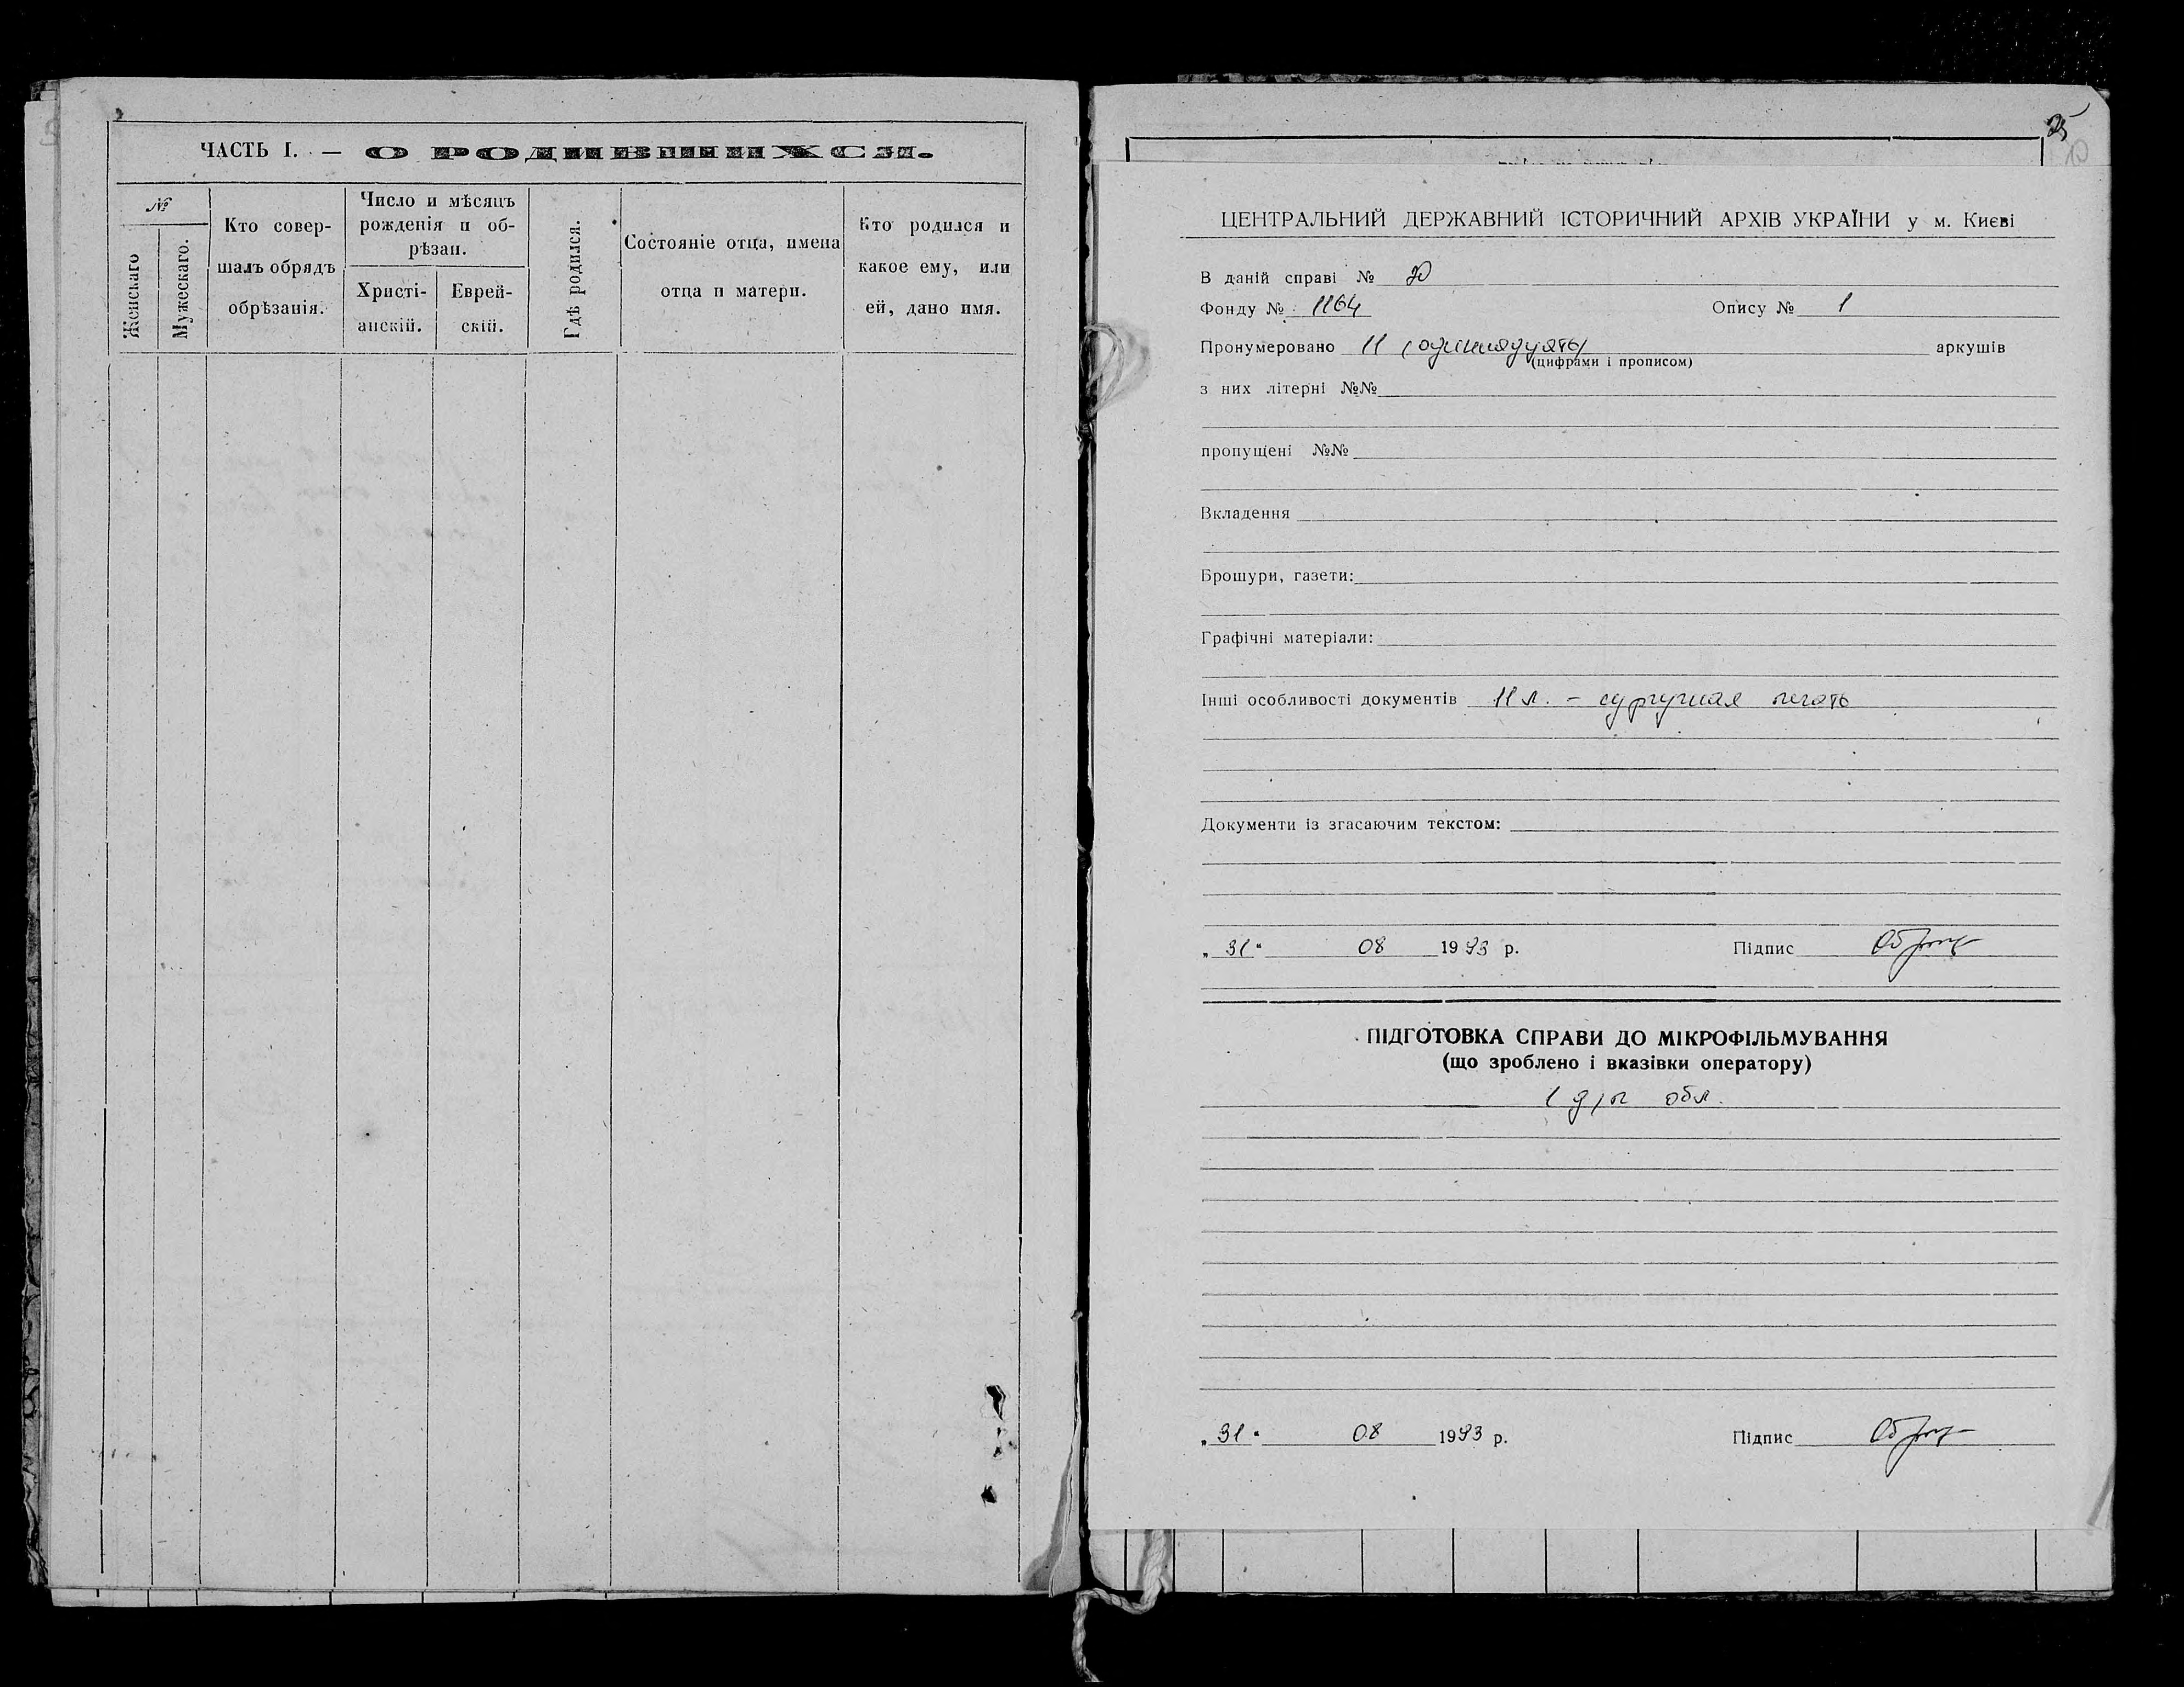 ЧАСТЬ I. — О РОДИВШИХСЯ.
№
Женскаго
Мужескаго.
Кто совер-
шалъ обрядъ
обрѣзанія.
Число и мѣсяцъ
рожденія и об-
рѣзан.
Христі-
анскій.
Еврей-
скій.
Гдѣ родился.
Состояніе отца, имена
отца и матери.
Кто родился и
какое ему, или
ей, дано имя.
10
ЦЕНТРАЛЬНИЙ ДЕРЖАВНИЙ ІСТОРИЧНИЙ АРХІВ УКРАЇНИ у м. Києві
В даній справі №
Фонду № 1164 Опису № 1
Пронумеровано 11 (одиннадцять) аркушів
(цифрами і прописом)
з них літерні №№
пропущені №№
Вкладення
Брошури, газети:
Графічні матеріали:
Інші особливості документів 11 л. – сургучная печать
Документи із згасаючим текстом:
„ 31 “ 08 1993 р. Підпис
ПІДГОТОВКА СПРАВИ ДО МІКРОФІЛЬМУВАННЯ
(що зроблено і вказівки оператору)
обл.
„ 31 “ 08 1993 р. Підпис